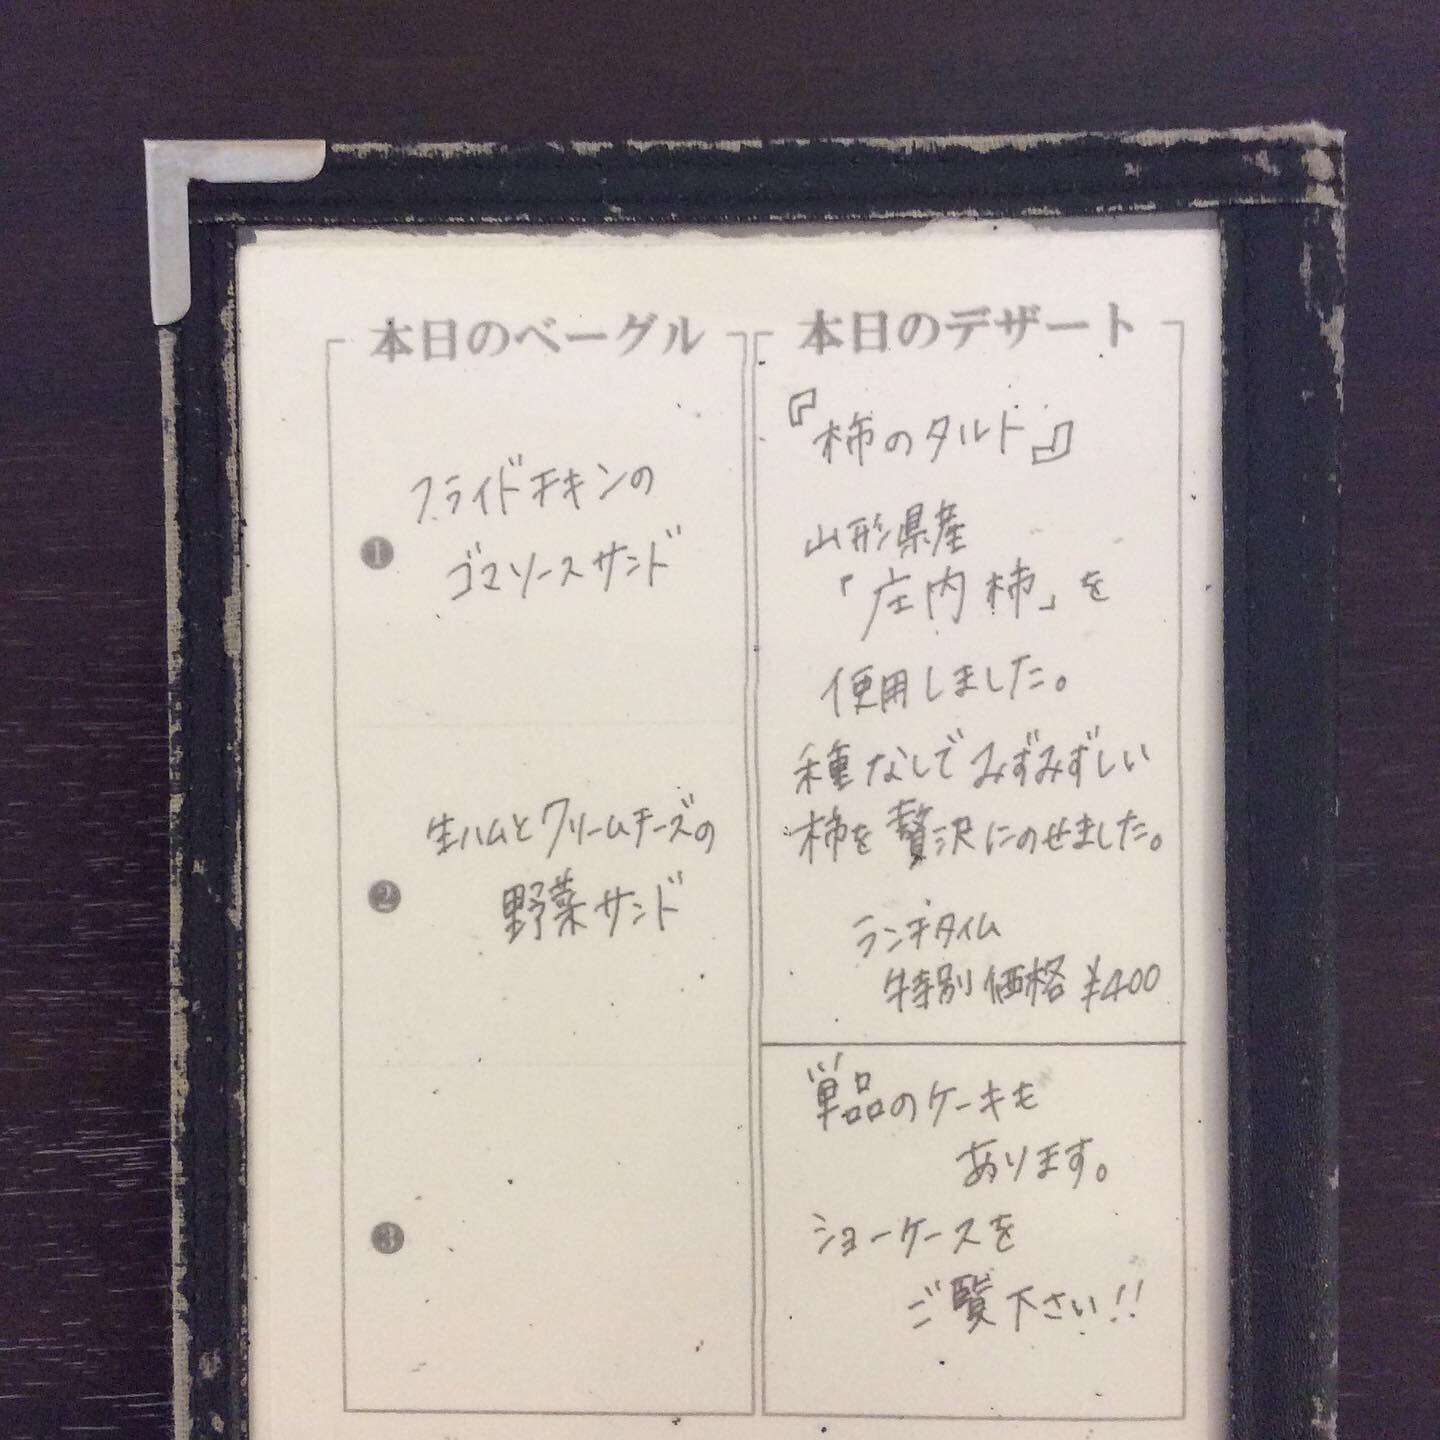 本日のベーグル
❶
フライドチキンの
ゴマソースサンド
❷
生ハムとクリームチーズの
野菜サンド
❸
本日のデザート
『柿のタルト』
山形県産
「庄内柿」を
使用しました。
種なしでみずみずしい
柿を贅沢にのせました。
ランチタイム
特別価格¥400
単品のケーキも
あります。
ショーケースを
ご覧下さい!!